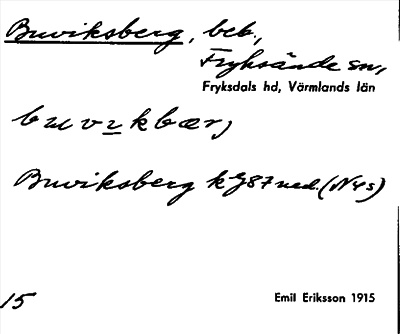 Buviksberg, beb.,
Fryksände sn,
Fryksdals hd, Värmlands län
Buviksberg kg 87 ned. (N4s)
15
Emil Eriksson 1915